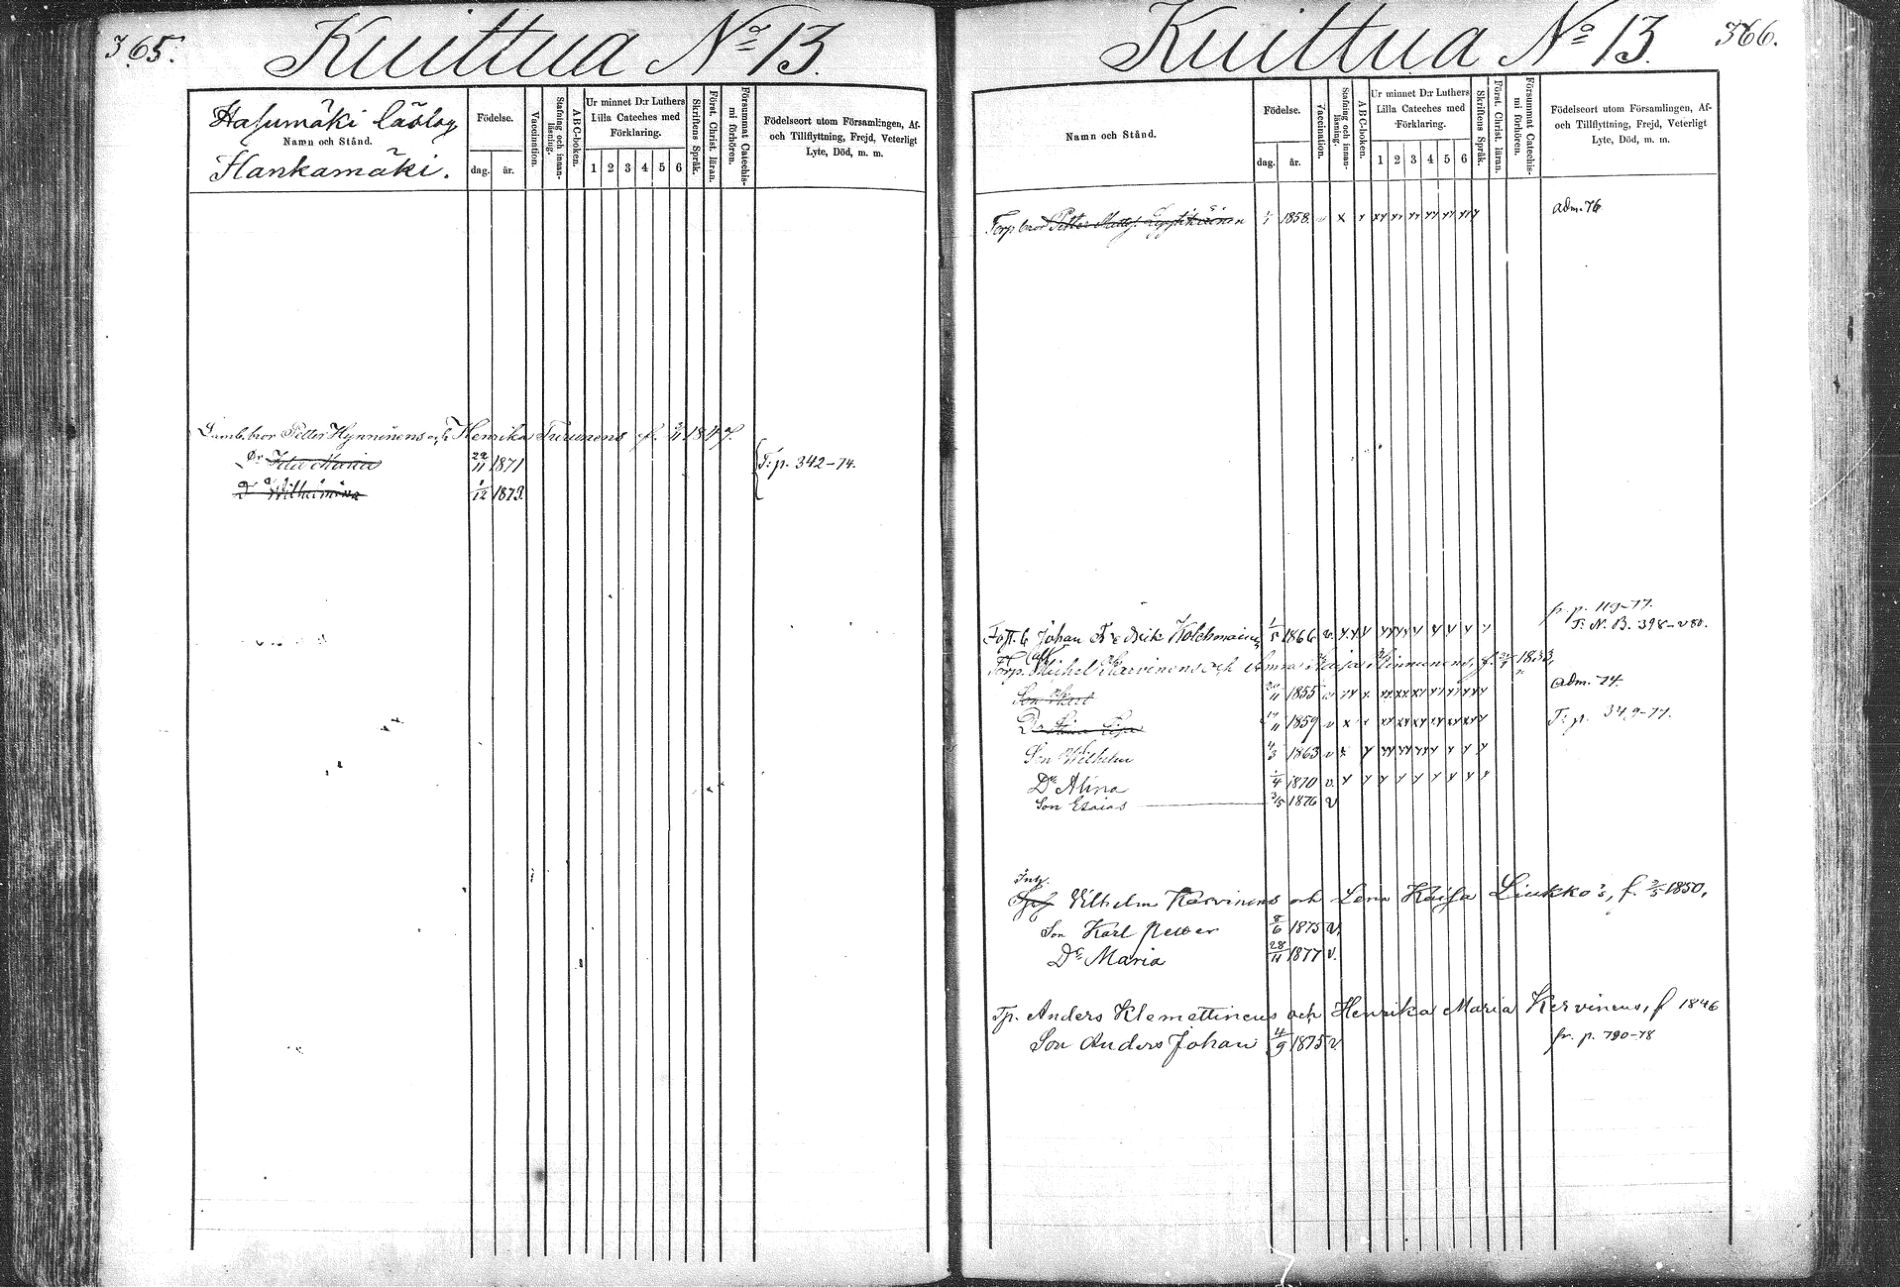 365.
Kuittua No 13.
Hankamäki.
Namn och Stånd.
Födelse.
dag.
år.
Vaccination.
Stafning och innan-
läsning.
ABC-boken.
Ur minnet D:r Luthers
Lilla Cateches med
Förklaring.
1 2 3 4 5 6
Skriftens Språk.
Först. Christ. läran.
Försummat Catechis-
mi förhören.
Födelseort utom Församlingen, Af-
och Tillflyttning, Frejd, Veterligt
Lyte, Död, m. m.
Petter Hynninens och Henrika Turunens f. 1847.
Dr Ida Maria 22/11 1871
T: p. 342-74.
Dr Wilhelmina 1/12 1873.
Kuittua No 13.
366.
Namn och Stånd.
Födelse.
dag.
år.
Vaccination.
Stafning och innan-
läsning.
ABC-boken.
Ur minnet D:r Luthers
Lilla Cateches med
Förklaring.
1 2 3 4 5 6
Skriftens Språk.
Först. Christ. läran.
Försummat Catechis-
mi förhören.
Födelseort utom Församlingen, Af-
och Tillflyttning, Frejd, Veterligt
Lyte, Död, m. m.
Torp. bror Petter 1858. v
adm. 76
fr. p. 119-77.
Johan Fredrik Kolehmainen 1/5 1866 v.
T: N. B. 398-v 80.
Torp. Michel Karvinens och Anna Kaisa Kinnunens, f. 1833,
Son 1855 v
adm. 74.
Dr 1859 v
T: p. 349-77.
Son Wilhelm 4/3 1863 v
Dr Alina 1/4 1870 v.
Son Esaias 3/5 1876 v
Inh.
Vilhelm Karvinens och Lena Kaisa Liukko's, f. 3/5 1850,
Son Karl Petter 8/6 1875 v.
Dr Maria 28/11 1877 v.
Tp. Anders Klemettinens och Henrika Maria Kervinens, f 1846
Son Anders Johan 4/9 1875 v.
fr. p. 790-78